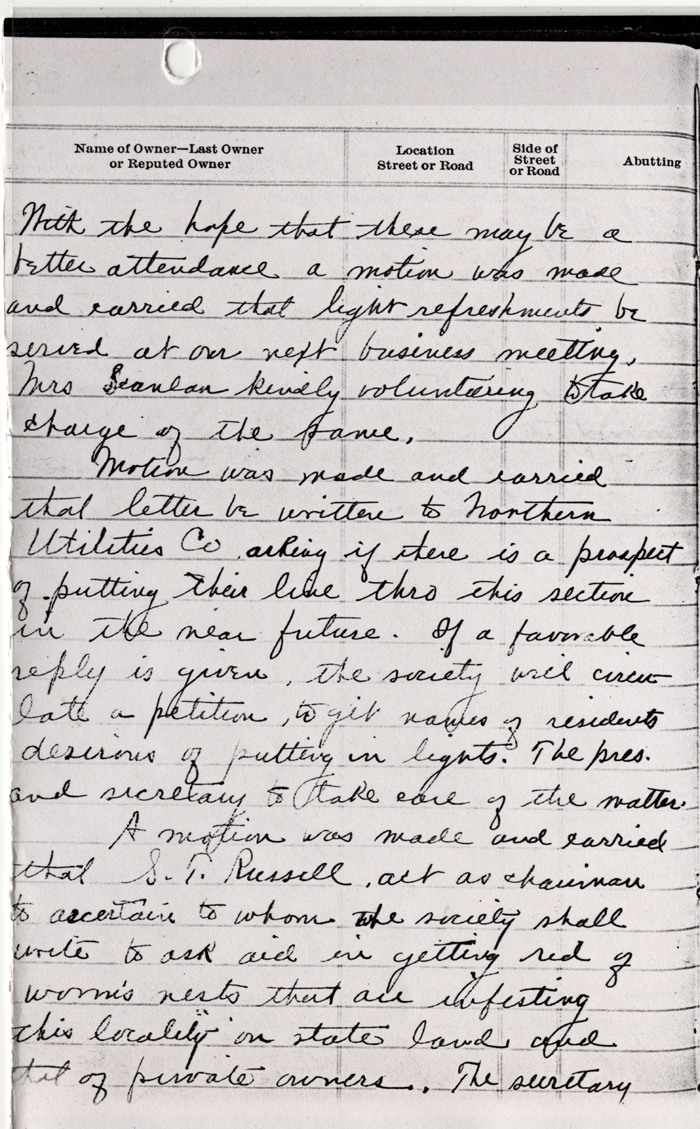 Name of Owner—Last Owner
or Reputed Owner
Location
Street or Road
Side of
Street
or Road
Abutting
With the hope that there may be a
better attendance a motion was made
and carried that light refreshments be
served at our next business meeting,
Mrs Scanlan kindly voluntering to take
charge of the same.
Motion was made and carried
that letter be written to Northern
Utilities Co. asking if there is a prospect
of putting their line thro this section
in the near future. If a favorable
reply is given, the society will circu-
late a petition, to get names of residents
desirous of putting in lights. The pres.
and secretary to take care of the matter.
A motion was made and carried
that S. T. Russell, act as chairman
to ascertain to whom the society shall
write to ask aid in getting rid of
worm's nests that are infesting
this locality on state land and
that of private owners. The secretary